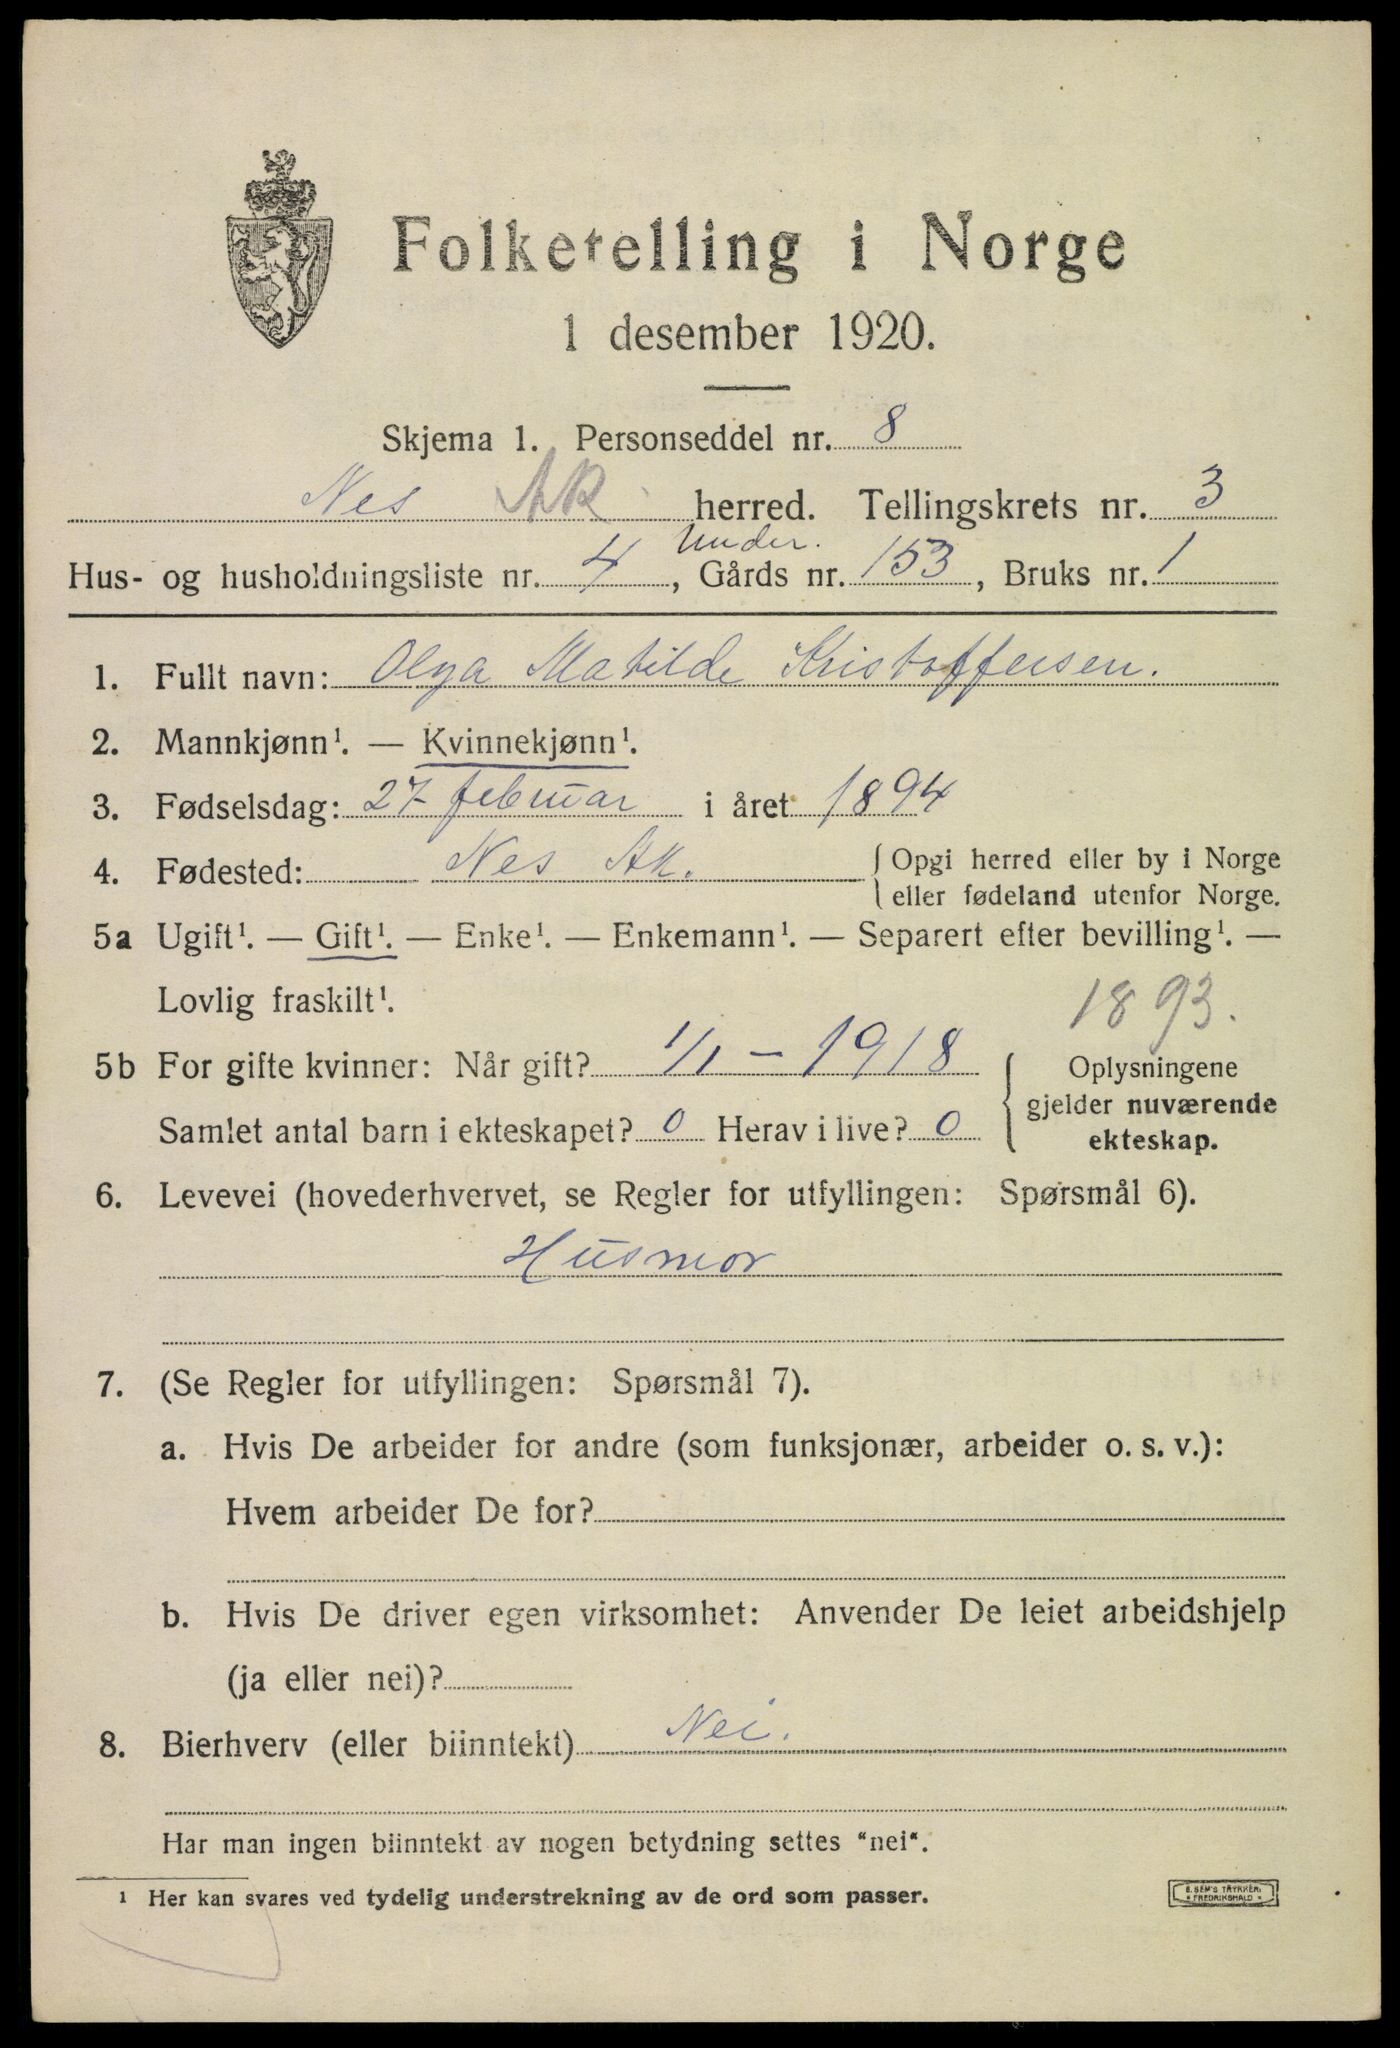 Folketelling i Norge
1 desember 1920.
Skjema 1. Personseddel nr. 8
Nes AK herred. Tellingskrets nr. 3
Under.
Hus- og husholdningsliste nr. 4, Gårds nr. 153, Bruks nr. 1
1. Fullt navn: Olga Matilde Kristoffersen.
2. Mannkjønn¹. — Kvinnekjønn¹.
3. Fødselsdag: 27 februar i året 1894
4. Fødested: Nes Ak. {Opgi herred eller by i Norge
eller fødeland utenfor Norge.
5a Ugift¹. — Gift¹. — Enke¹. — Enkemann¹. — Separert efter bevilling¹. —
Lovlig fraskilt¹.
1893.
5b For gifte kvinner: Når gift? 1/1 – 1918
Samlet antal barn i ekteskapet? 0 Herav i live? 0
Oplysningene
gjelder nuværende
ekteskap.
6. Levevei (hovederhvervet, se Regler for utfyllingen: Spørsmål 6).
Husmor
7. (Se Regler for utfyllingen: Spørsmål 7).
a. Hvis De arbeider for andre (som funksjonær, arbeider o. s. v.):
Hvem arbeider De for?
b. Hvis De driver egen virksomhet: Anvender De leiet arbeidshjelp
(ja eller nei)?
8. Bierhverv (eller biinntekt) Nei.
Har man ingen biinntekt av nogen betydning settes "nei".
¹ Her kan svares ved tydelig understrekning av de ord som passer.
E. SEM'S TRYKKERI
FREDRIKSHALD